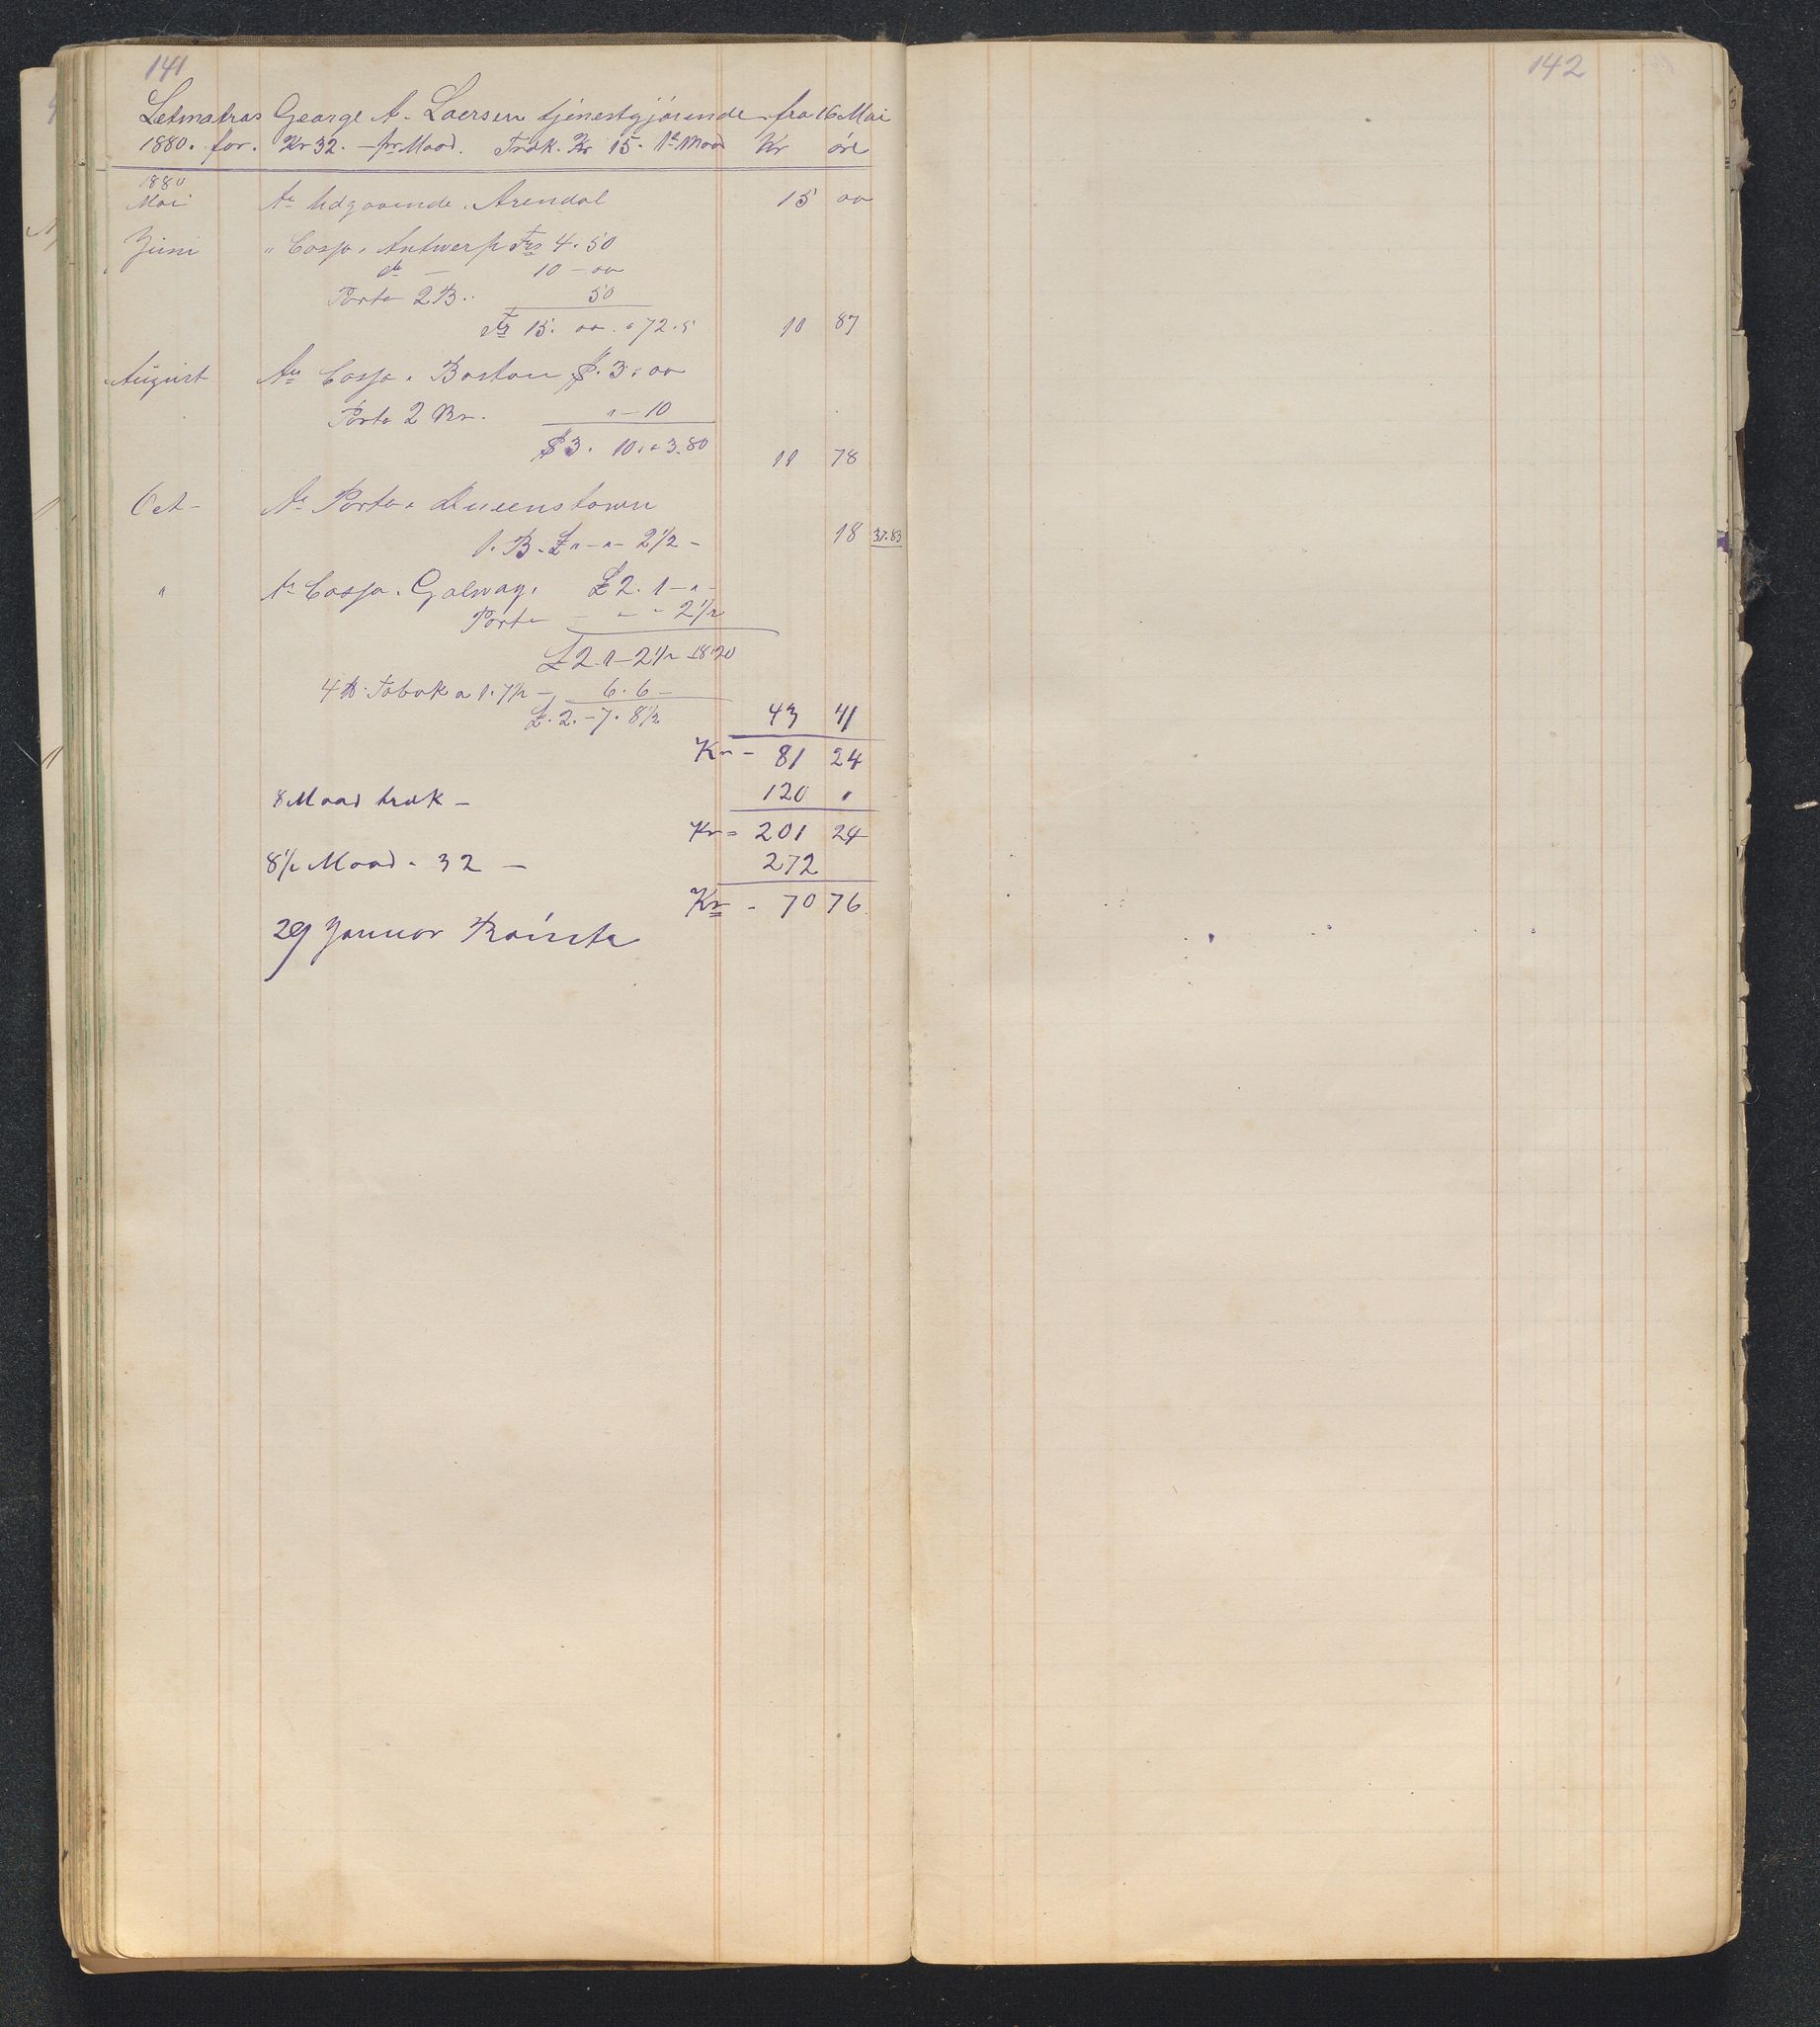 141
Letmatros George A. Laersen tjenestgjørende fra 16 Mai
1880. for. Kr 32. - pr Maad. Träk. Kr 15. Pr Maad Kr öre
1880
Mai Ar Udgaaende. Arendal 15 00
Juni " Cassa. Antwerp Frs 4.50
do - 10 - 00
Porto 2 B. 50
Fr 15. 00. a 72.5 10 87
August An Cassa. Boston $. 3.00
Porto 2 Br. " - 10
$ 3. 10. a 3.80 11 78
Oct - An Porto. Queenstown
1. B. £ " - " - 2 1/2 - 18 37.83
" An Cassa. Galway. £ 2. 1 - " -
Porto - " - 2 1/2
£ 2. 1 - 2 1/2 - 18.20
4 lb. Tobak a 1. 7 1/2 - 6. 6 -
£. 2. - 7. 8 1/2 43 41
Kr - 81 24
8 Maad träk - 120 "
Kr = 201 24
8 1/2 Maad. 32 - 272
Kr - 70 76
29 Januar
142